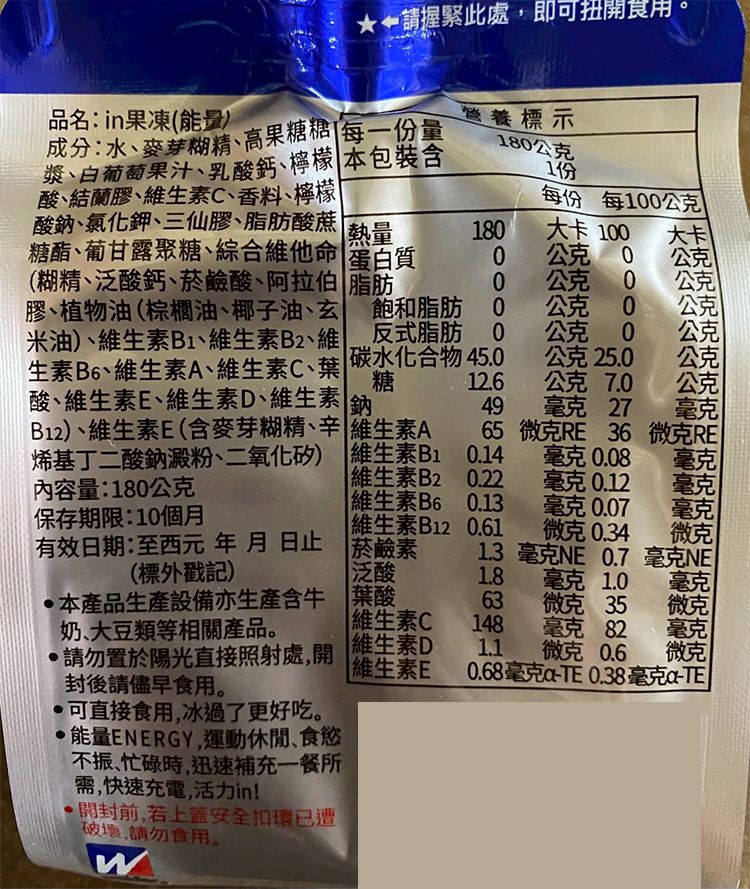 ★←請握緊此處，即可扭開食用。
品名：in果凍(能量)
成分：水、麥芽糊精、高果糖糖
漿、白葡萄果汁、乳酸鈣、檸檬
酸、結蘭膠、維生素C、香料、檸檬
酸鈉、氯化鉀、三仙膠、脂肪酸蔗
糖酯、葡甘露聚糖、綜合維他命
(糊精、泛酸鈣、菸鹼酸、阿拉伯
膠、植物油(棕櫚油、椰子油、玄
米油)、維生素B1、維生素B2、維
生素B6、維生素A、維生素C、葉
酸、維生素E、維生素D、維生素
B12)、維生素E(含麥芽糊精、辛
烯基丁二酸鈉澱粉、二氧化矽)
內容量：180公克
保存期限：10個月
有效日期：至西元 年 月 日止
(標外戳記)
•本產品生產設備亦生產含牛
奶、大豆類等相關產品。
•請勿置於陽光直接照射處，開
封後請儘早食用。
•可直接食用，冰過了更好吃。
•能量ENERGY，運動休閒、食慾
不振、忙碌時，迅速補充一餐所
需，快速充電，活力in!
•開封前，若上蓋安全扣環已遭
破壞，請勿食用。
W
營養標示
每一份量 180公克
本包裝含 1份
每份 每100公克
熱量 180 大卡 100 大卡
蛋白質 0 公克 0 公克
脂肪 0 公克 0 公克
飽和脂肪 0 公克 0 公克
反式脂肪 0 公克 0 公克
碳水化合物 45.0 公克 25.0 公克
糖 12.6 公克 7.0 公克
鈉 49 毫克 27 毫克
維生素A 65 微克RE 36 微克RE
維生素B1 0.14 毫克 0.08 毫克
維生素B2 0.22 毫克 0.12 毫克
維生素B6 0.13 毫克 0.07 毫克
維生素B12 0.61 微克 0.34 微克
菸鹼素 1.3 毫克NE 0.7 毫克NE
泛酸 1.8 毫克 1.0 毫克
葉酸 63 微克 35 微克
維生素C 148 毫克 82 毫克
維生素D 1.1 微克 0.6 微克
維生素E 0.68 毫克α-TE 0.38 毫克α-TE